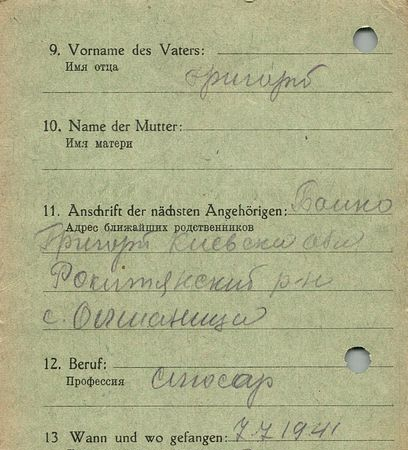 9. Vorname des Vaters:
Имя отца
Григорій
10. Name der Mutter:
Имя матери
11. Anschrift der nächsten Angehörigen:
Адрес ближайших родственников
Григорій Киевска обл
Рокитянский р-н
с. Ольшаница
12. Beruf:
Профессия слюсар
13 Wann und wo gefangen: 7.7.1941